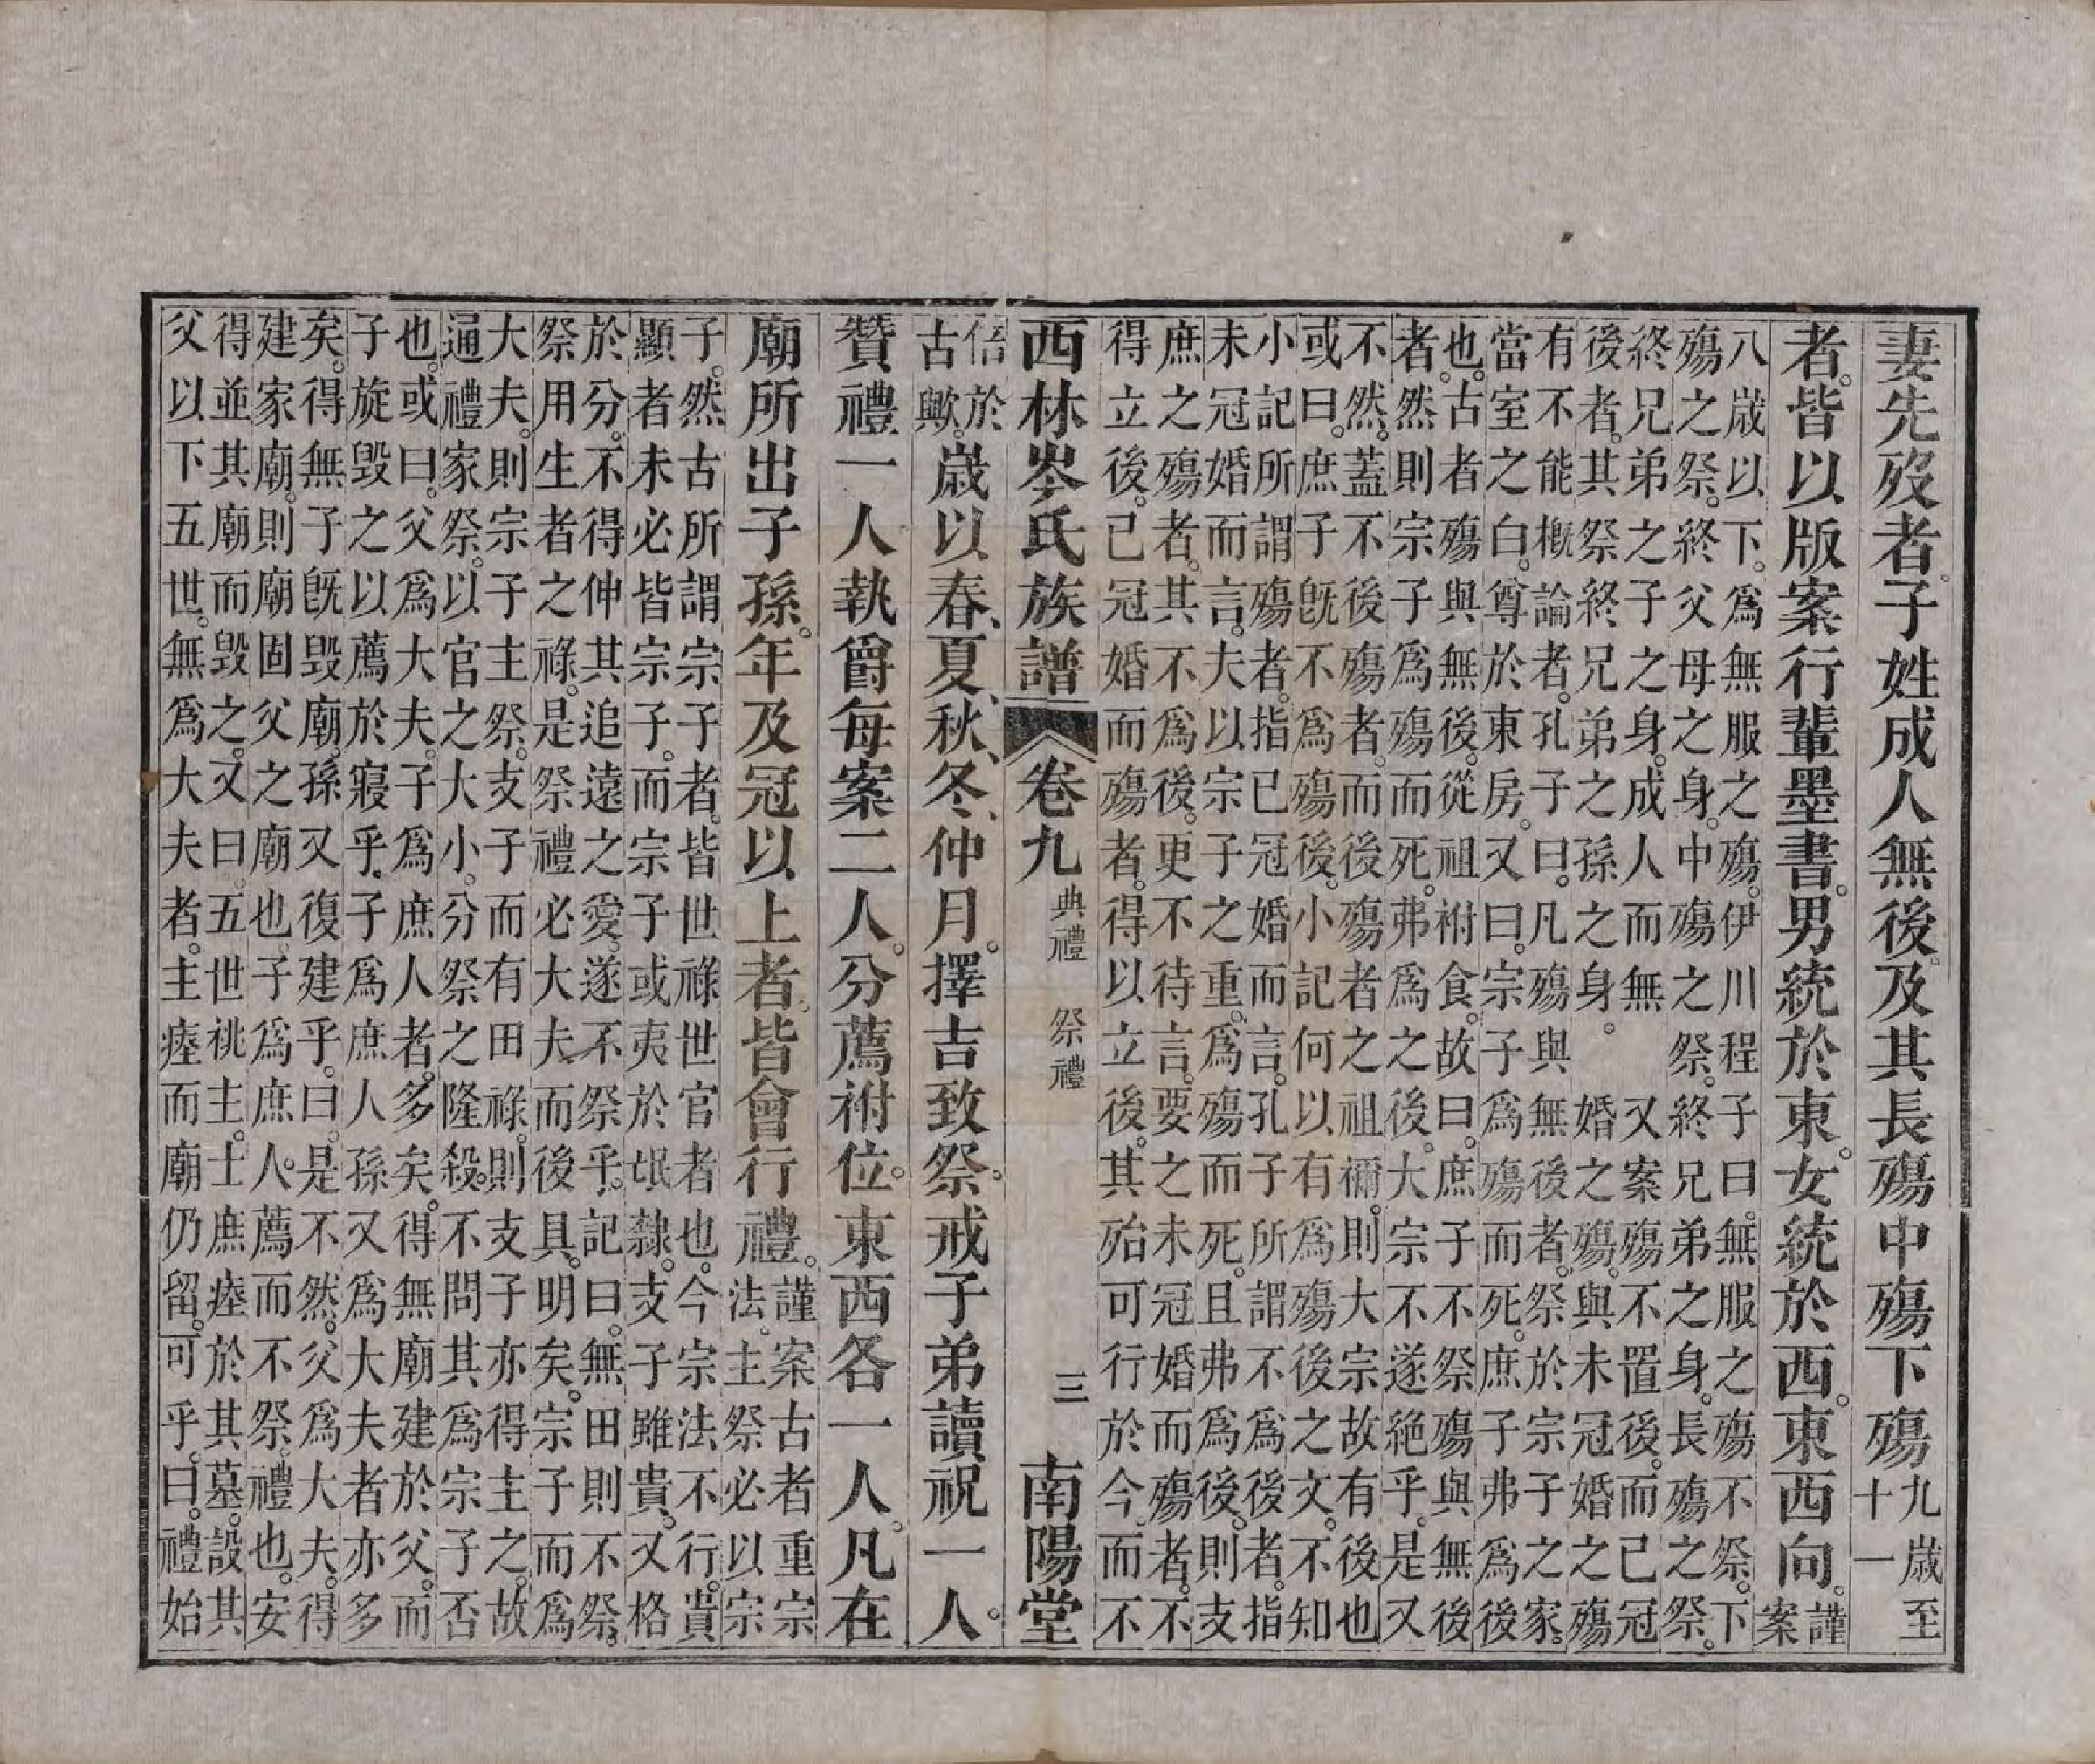 妻先歿者。子姓成人無後。及其長殤中殤下殤
九歲至
十一
者。皆以版案行輩墨書。男統於東。女統於西。東西向。
謹
案
八歲以下。爲無服之殤。伊川程子曰。無服之殤不祭。下
殤之祭。終父母之身。中殤之祭。終兄弟之身。長殤之祭。
終兄弟之子之身。成人而無
後者。其祭終兄弟之孫之身。
又案殤不置後。而已冠
婚之殤。與未冠婚之殤
有不能概論者。孔子曰。凡殤與無後者。祭於宗子之家。
當室之白。尊於東房。又曰。宗子爲殤而死。庶子弗爲後
也。古者殤與無後。從祖祔食。故曰。庶子不祭殤與無後
者。然則宗子爲殤而死。弗爲之後。大宗不遂絶乎。是又
不然。蓋不後殤者。而後殤者之祖禰。則大宗故有後也
或曰。庶子旣不爲殤後。小記何以有爲殤後之文。不知
小記所謂殤者。指已冠婚而言。孔子所謂不爲後者。指
未冠婚而言。夫以宗子之重。爲殤而死。且弗爲後。則支
庶之殤者。其不爲後。更不待言。要之未冠婚而殤者。不
得立後。已冠婚而殤者。得以立後。其殆可行於今。而不
西林岑氏族譜 卷九 典禮 祭禮 三 南陽堂
倍於
古歟。
歲以春、夏、秋、冬、仲月。擇吉致祭。戒子弟讀祝一人。
贊禮一人。執爵每案二人。分薦祔位。東西各一人。凡在
廟所出子孫。年及冠以上者。皆會行禮。
謹案古者重宗
法。主祭必以宗
子。然古所謂宗子者。皆世祿世官者也。今宗法不行。貴
顯者未必皆宗子。而宗子或夷於氓隸。支子雖貴。又格
於分。不得伸其追遠之愛。遂不祭乎。記曰。無田則不祭。
祭用生者之祿。是祭禮必大夫而後具。明矣。宗子而爲
大夫。則宗子主祭。支子而有田祿。則支子亦得主之。故
通禮家祭。以官之大小。分祭之隆殺。不問其爲宗子否
也。或曰。父爲大夫。子爲庶人者。多矣。得無廟建於父。而
子旋毁之以薦於寢乎。子爲庶人孫又爲大夫者亦多
矣。得無子旣毁廟。孫又復建乎。曰。是不然。父爲大夫。得
建家廟。則廟固父之廟也。子爲庶人。薦而不祭。禮也。安
得並其廟而毁之。又曰。五世祧主。士庶瘞於其墓。設其
父以下五世。無爲大夫者。主瘞而廟仍留。可乎。曰。禮始